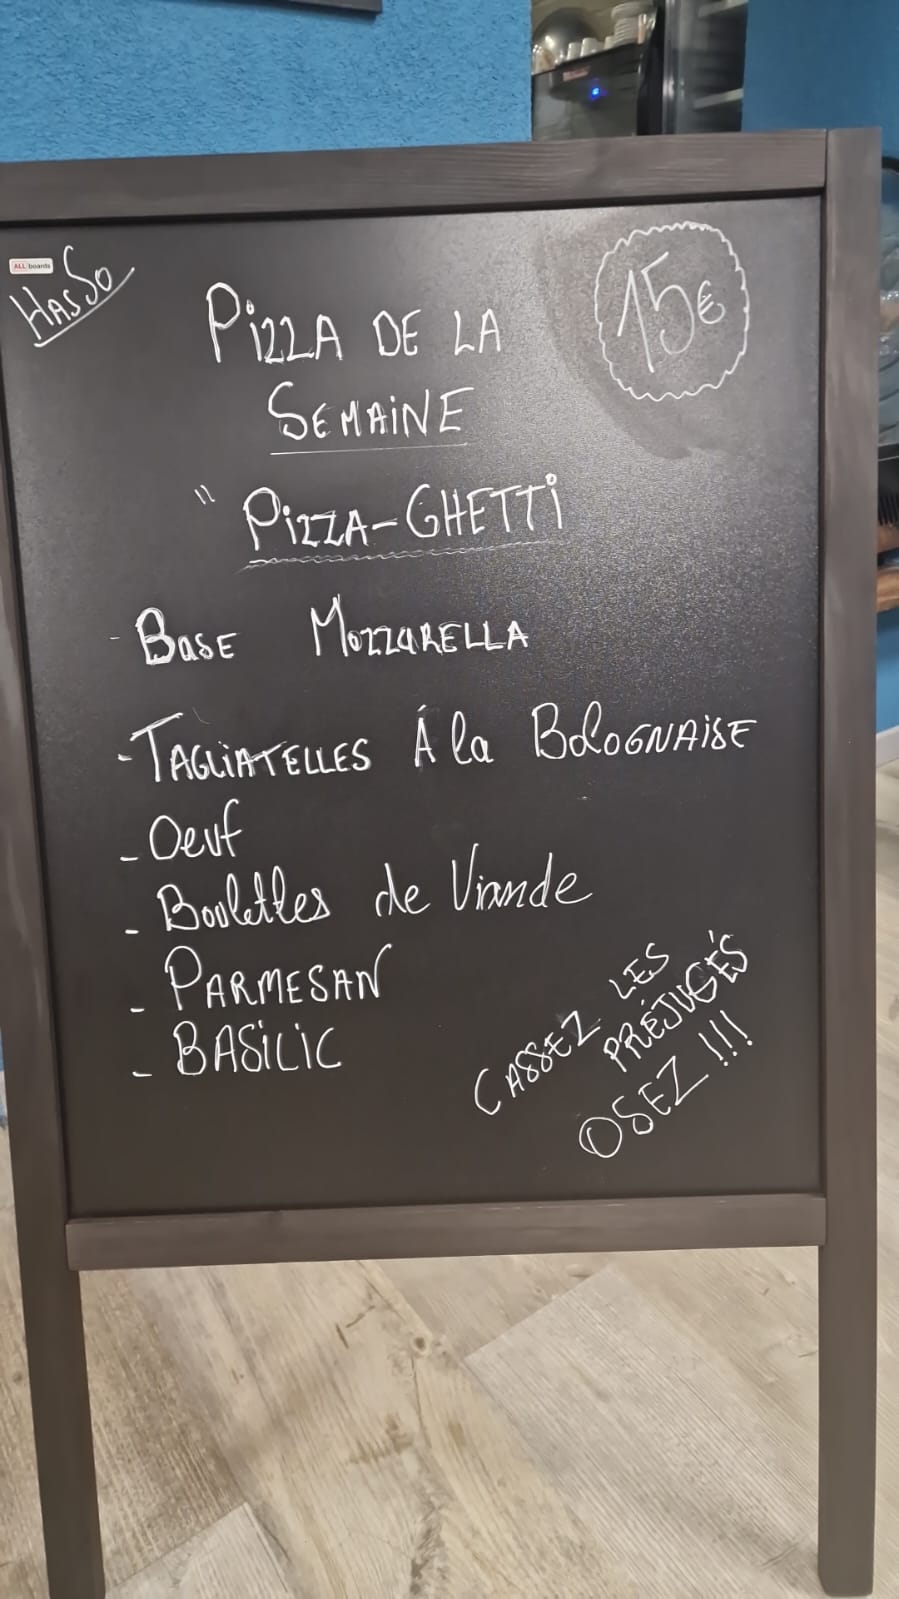 ALL boards
HasSo
15€
PIZZA DE LA
SEMAINE
" PIZZA-GHETTI
- BASE MOZZARELLA
- TAGLIATELLES Á la BOLOGNAISE
- Oeuf
- Boulettes de Viande
- PARMESAN
- BASILIC
CASSEZ LES
PRÉJUGÉS
OSEZ !!!